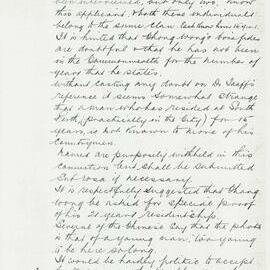 been interviewed, but only two, know
this applicant, & both these individuals
belong to the same clan
It is hinted that Chong Wong's bonafides
are doubtful & that he has not been
in the Commonwealth for the number of
years that he states.
Without casting any doubt on Dr
reference it seems somewhat strange
that a man who has resided at South
Perth, (practically in the City) for 15
years, is not known to more of his
Countrymen.
Names are purposely withheld in this
connection and shall be submitted
Sub rosa if necessary.
It is respectfully suggested that Chong
Wong be asked for special proof
of his 21 years residentship.
Several of the Chinese say that the photo
is that of a young man, too young
to be here so long.
It would be hardly politic to accept